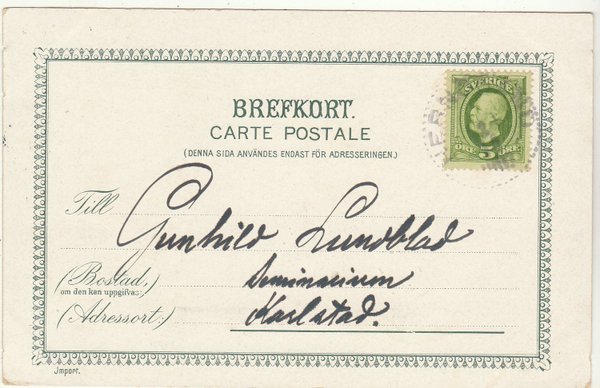 BREFKORT.
CARTE POSTALE
(DENNA SIDA ANVÄNDES ENDAST FÖR ADRESSERINGEN.)
SVERIGE
ÖRE 5 ÖRE
Till Gunhild Lundblad
(Bostad, Seminarium
om den kan uppgifvas:)
(Adressort:) Karlstad.
Import.